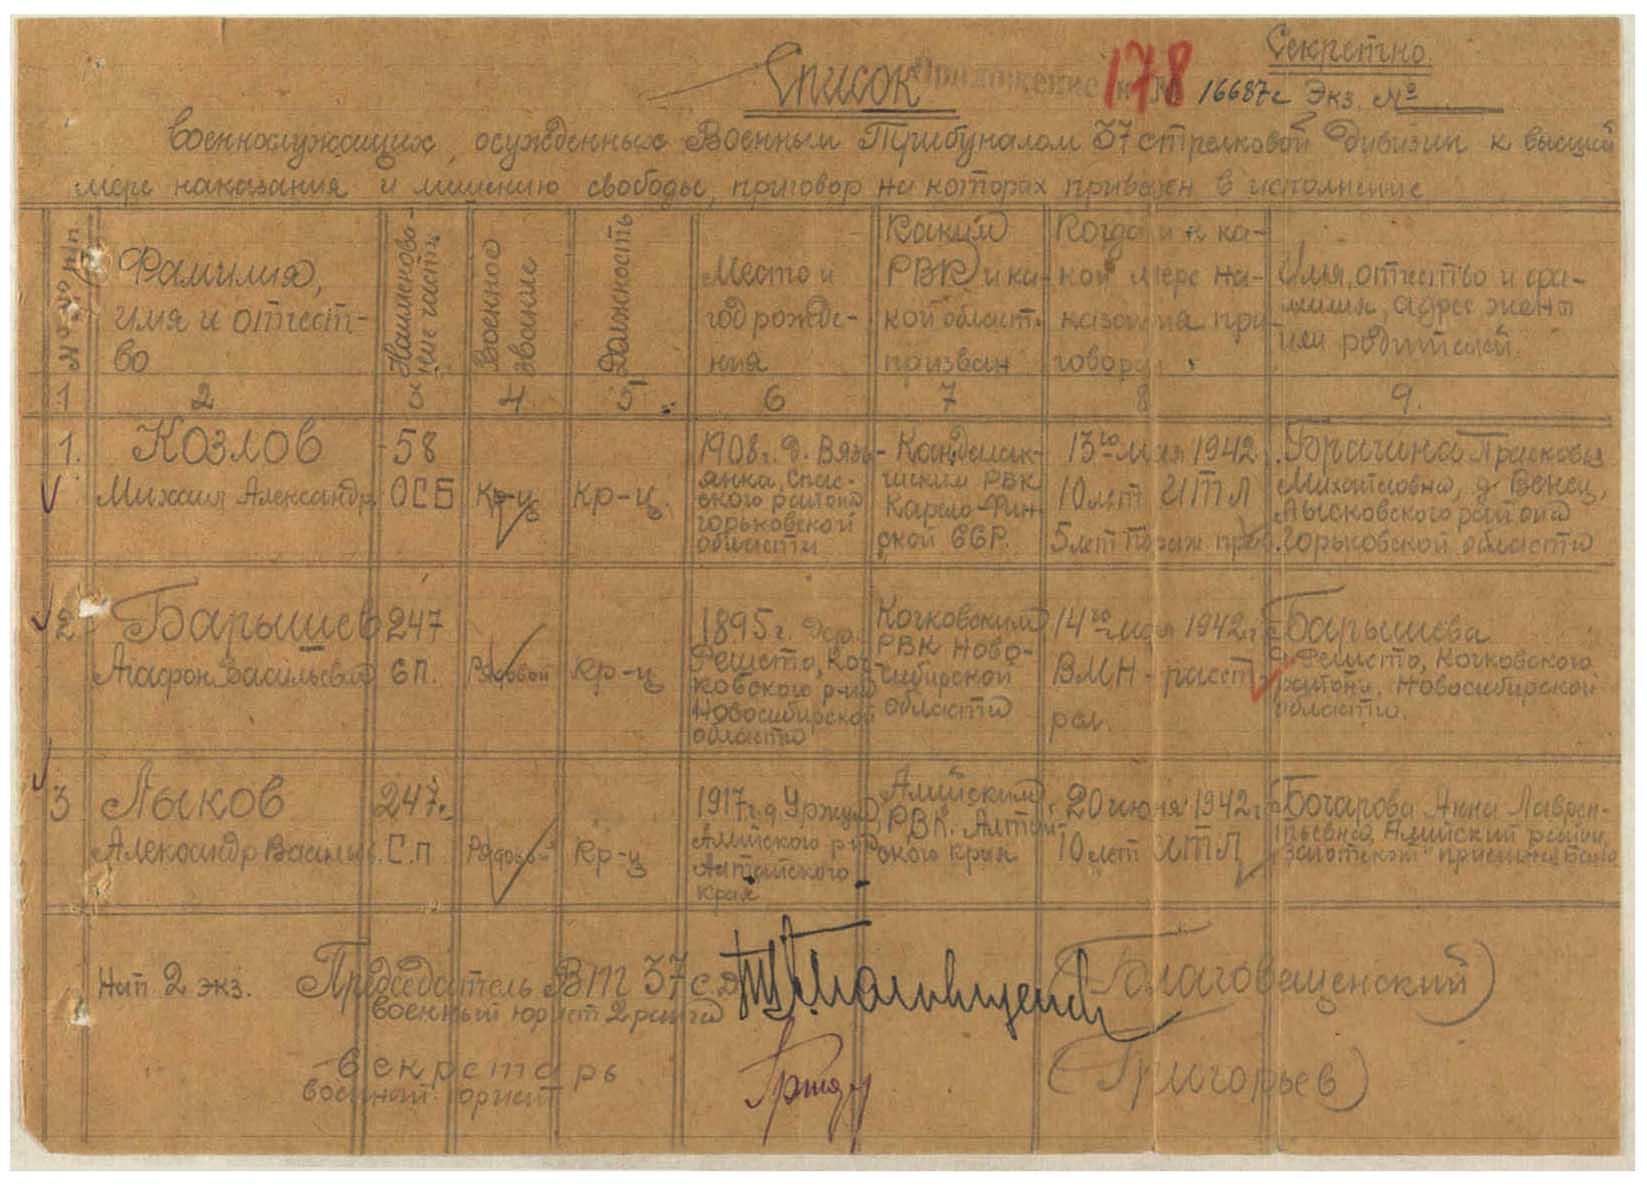 Секретно
Список
Приложение к № 16687с Экз. №
178
военнослужащих, осужденных Военным Трибуналом 37 стрелковой дивизии к высшей
мере наказания и лишению свободы, приговор на которых приведен в исполнение
№№ п/п.
Фамилия,
имя и отчест-
во
Наименова-
ние части
Военное
звание
Должность
Место и
год рожде-
ния
Каким
РВК и ка-
кой област.
призван
Когда и к ка-
кой мере на-
казания при-
говорен
Имя, отчество и фа-
милия, адрес жены
или родителей.
1 2 3 4 5 6 7 8 9.
1.
Козлов
Михаил Александр.
58
ОСБ
Кр-ц
Кр-ц
1908г. д. Вязь-
янка, Спас-
ского района
Горьковской
области
Кандалак-
шским РВК
Карело-Фин-
ской ССР.
13го мая 1942г.
10 лет ИТЛ
5 лет пораж. прав.
Брагина Прасковья
Михайловна, д. Венец,
Лысковского района
Горьковской области
2
Барышев
Агафон Васильевич
247
СП.
Рядовой
Кр-ц
1895г. дер.
Решето, Коч-
ковского р-на
Новосибирской
области
Кочковским
РВК Ново-
сибирской
области
14го мая 1942г.
ВМН - расст
рел.
Барышева
с. Решето, Кочковского
района, Новосибирской
области.
3
Лыков
Александр Васильев.
247
С.П
Рядовой
Кр-ц
1917г. д. Уржум
Алейского р-на
Алтайского
края
Алейским
РВК. Алтай-
ского края
20 июня 1942г.
10 лет ИТЛ
Бочарова Анна Лаврен-
тьевна, Алейский район,
Нап. 2 экз.
Председатель ВТ 37 с.д.
военный юрист 2 ранга
(Благовещенский)
Секретарь
военный юрист
(Григорьев)